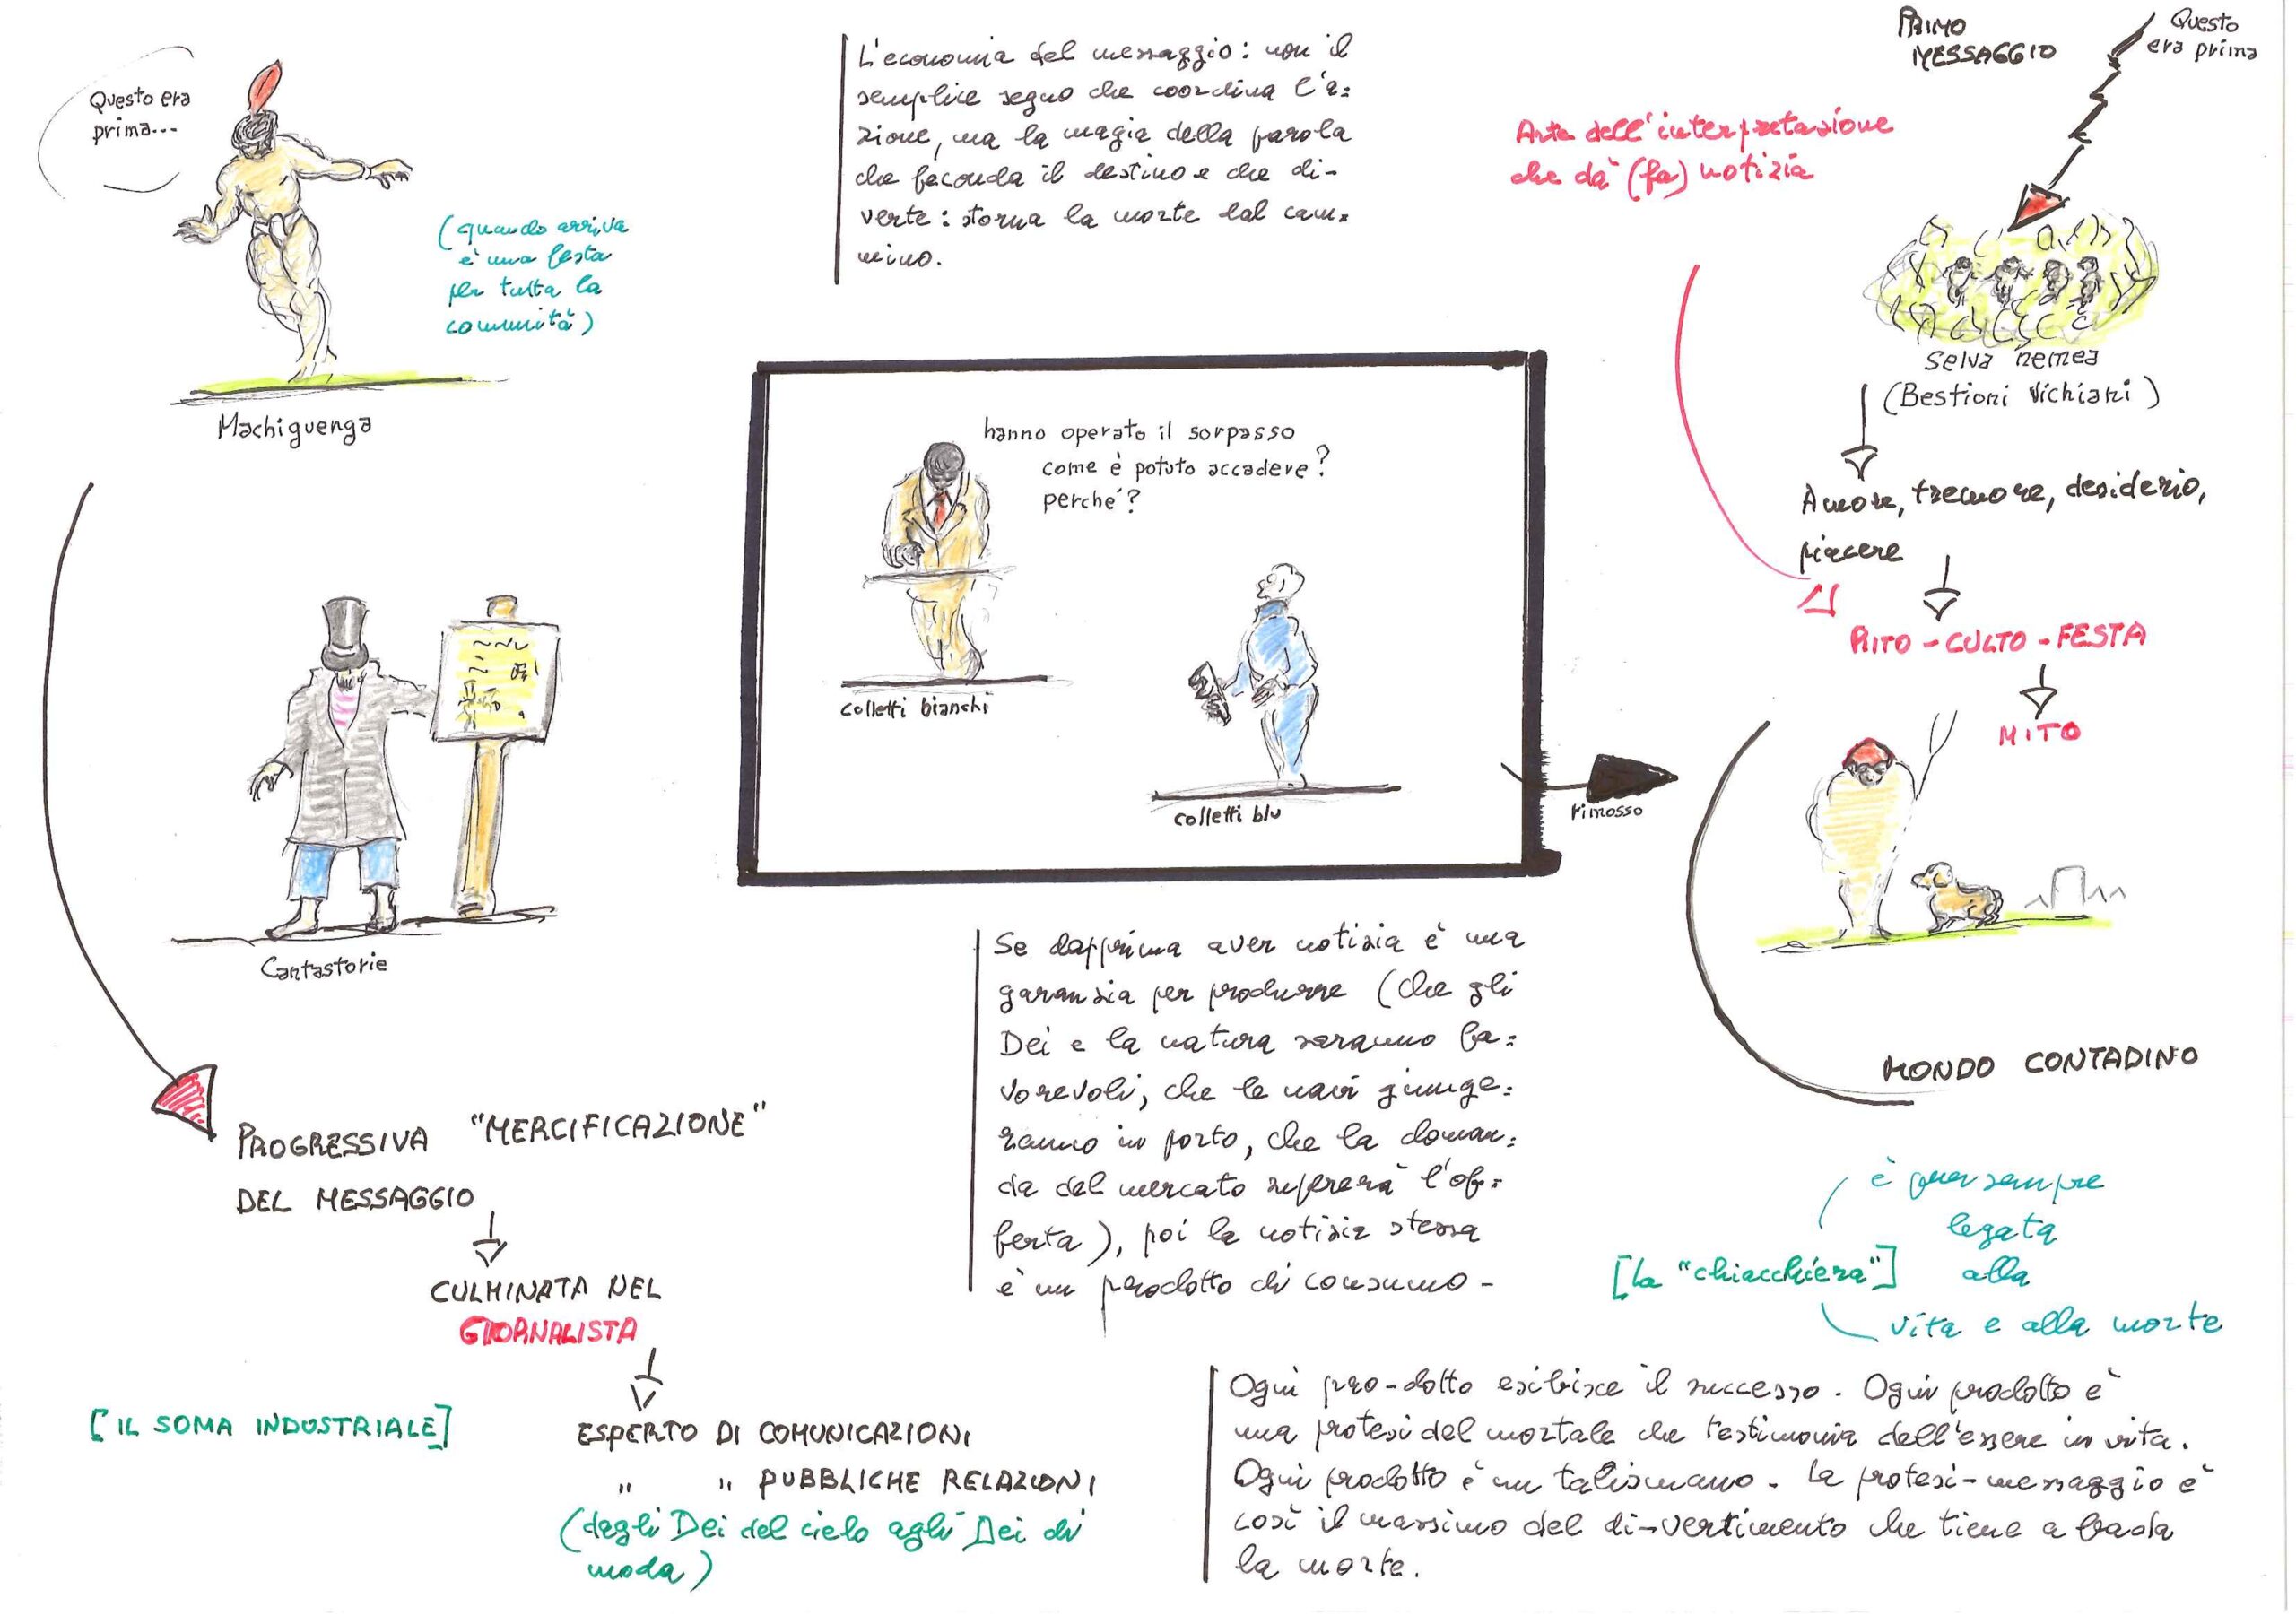 Questo era
prima...
(quando arriva
è una festa
per tutta la
comunità)
Machiguenga
Cantastorie
PROGRESSIVA "MERCIFICAZIONE"
DEL MESSAGGIO
CULMINATA NEL
GIORNALISTA
[IL SOMA INDUSTRIALE]
ESPERTO DI COMUNICAZIONI
" " PUBBLICHE RELAZIONI
(dagli Dei del cielo agli Dei di
moda)
L'economia del messaggio: non il
semplice segno che coordina l'a=
zione, ma la magia della parola
che feconda il destino e che di-
verte: storna la morte dal cam=
mino.
hanno operato il sorpasso
come è potuto accadere?
perché?
colletti bianchi
colletti blu
rimosso
Se dapprima aver notizia è una
garanzia per produrre (che gli
Dei e la natura saranno fa=
vorevoli, che le navi giunge=
ranno in porto, che la doman=
da del mercato supererà l'of=
ferta), poi la notizia stessa
è un prodotto di consumo -
PRIMO
MESSAGGIO
Questo
era prima
Arte dell'interpretazione
che dà (fa) notizia
Selva nemea
(Bestioni Vichiani)
Amore, tremore, desiderio,
piacere
RITO - CULTO - FESTA
MITO
MONDO CONTADINO
[la "chiacchiera"]
è pur sempre
legata
alla
vita e alla morte
Ogni pro-dotto esibisce il successo. Ogni prodotto è
una protesi del mortale che testimonia dell'essere in vita.
Ogni prodotto è un talismano. La protesi-messaggio è
così il massimo del di-vertimento che tiene a bada
la morte.